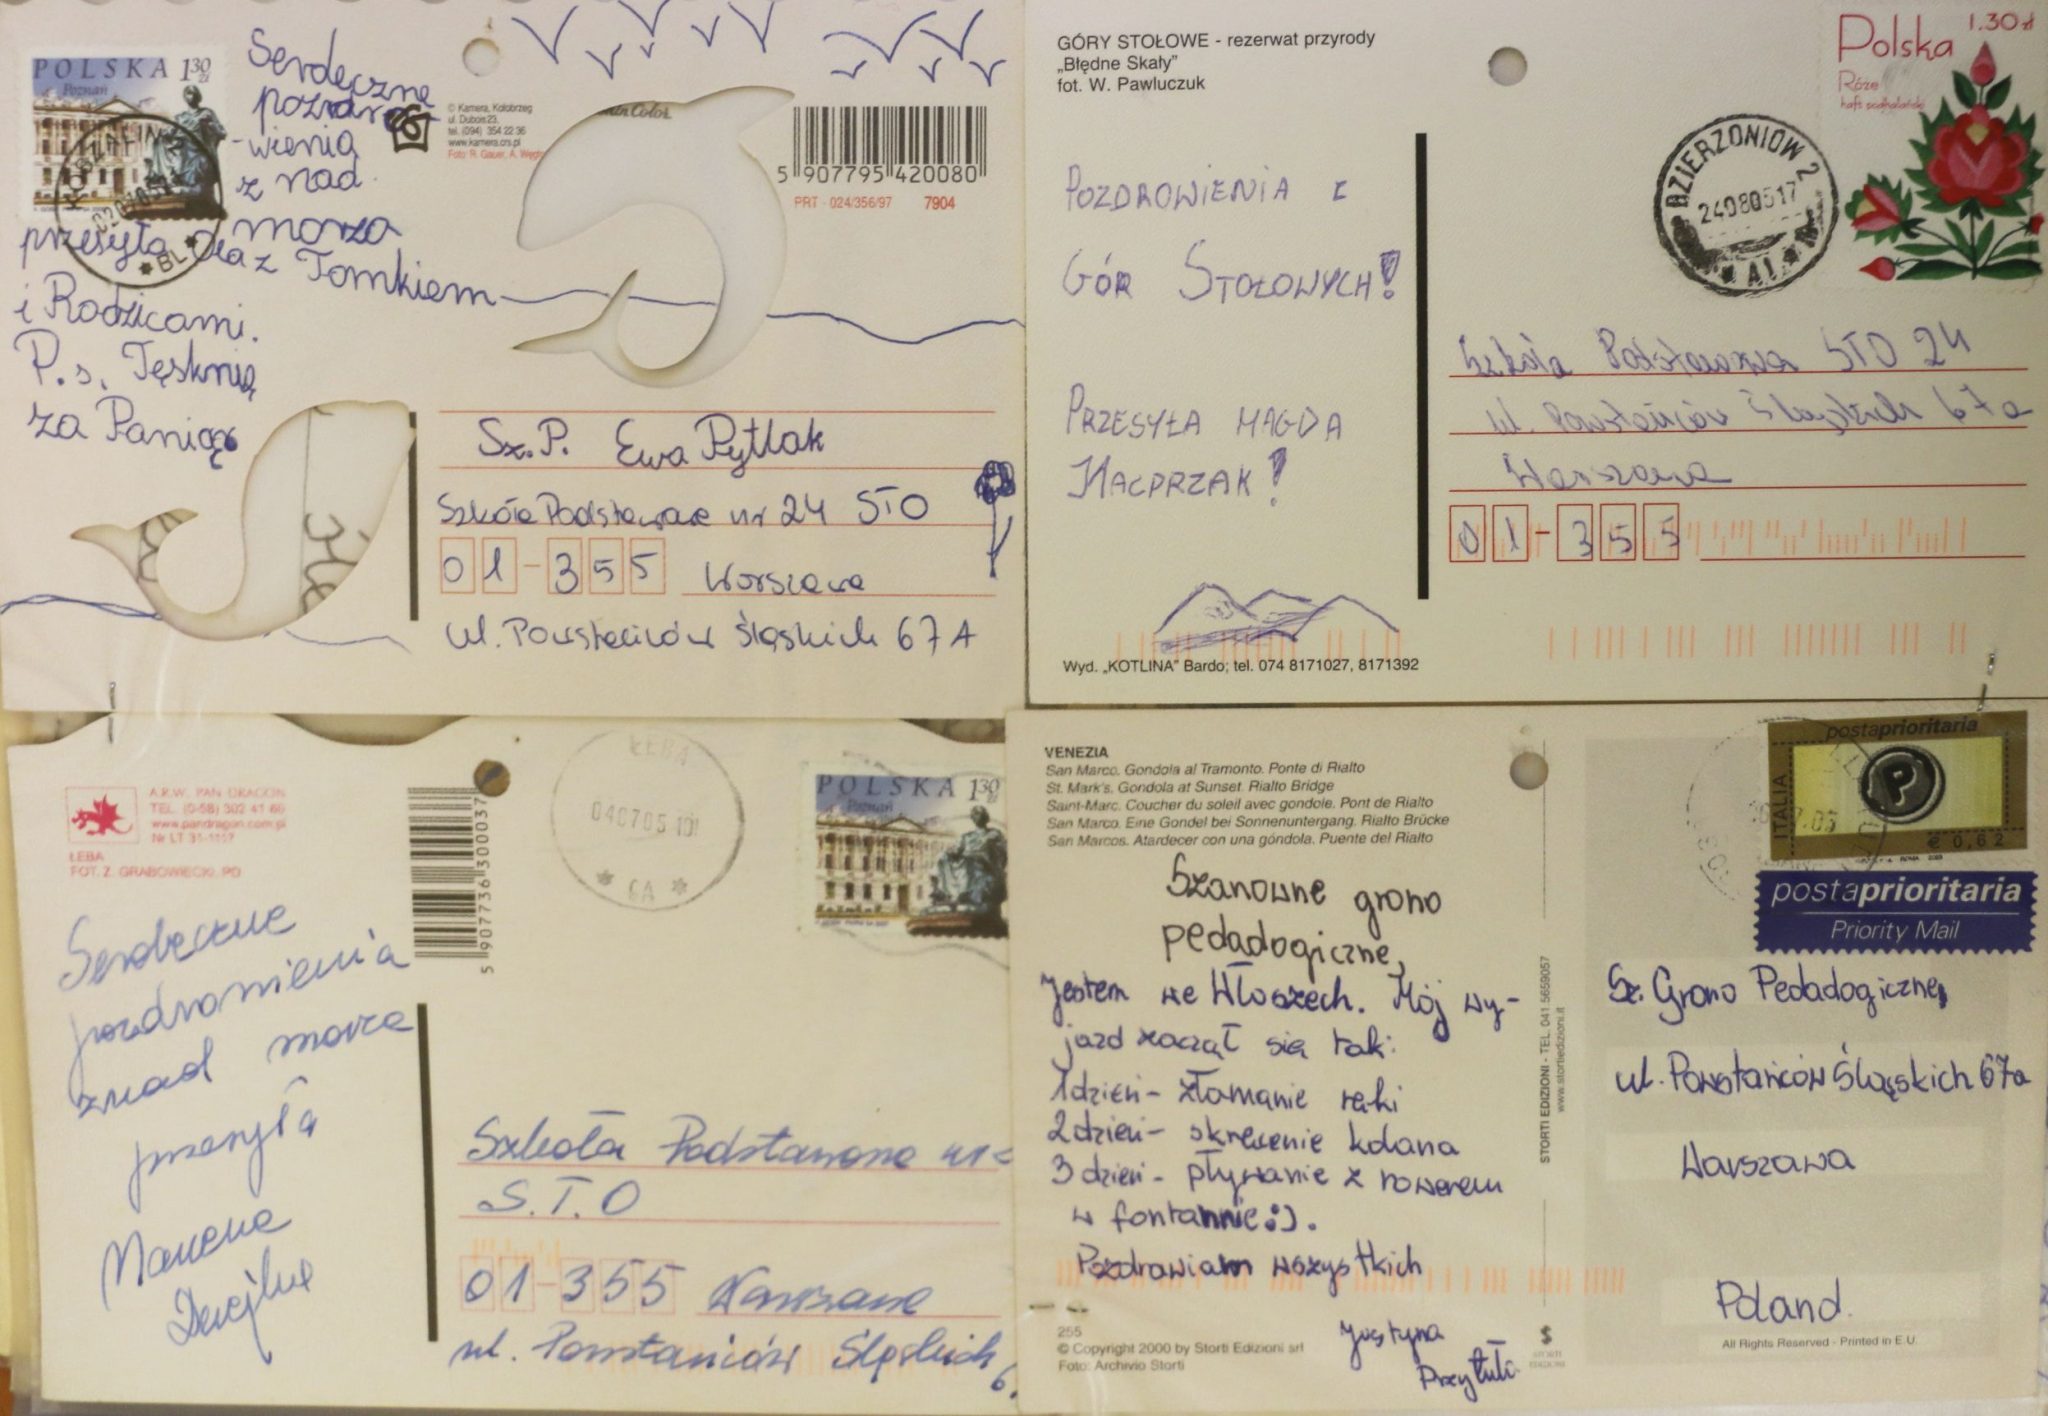 POLSKA 1,30 zł
Poznań
Serdeczne
pozdro
-wienia
z nad
morza
przesyła Ola z Tomkiem
i Rodzicami.
P.s. Tęsknię
za Panią
© Kamera, Kołobrzeg
ul. Dubois 23.
tel. (094) 354 22 36
www.kamera.crs.pl
Foto: R. Gauer, A.
Color
5 907795 420080
PRT - 024/356/97 7904
Sz. P. Ewa Pytlak
Szkoła Podstawowa nr 24 STO
01-355 Warszawa
ul. Powstańców Śląskich 67 A
GÓRY STOŁOWE - rezerwat przyrody
„Błędne Skały”
fot. W. Pawluczuk
Polska 1.30 zł
Róże
haft podhalański
DZIERŻONIÓW 2
24080517
* A1 *
POZDROWIENIA Z
GÓR STOŁOWYCH!
PRZESYŁA MAGDA
KACPRZAK!
Szkoła Podstawowa STO 24
ul. Powstańców Śląskich 67a
Warszawa
01-355
Wyd. „KOTLINA” Bardo; tel. 074 8171027, 8171392
A.R.W. PAN DRAGON
TEL. (0-58) 302 41 60
www.pandragon.com.pl
ŁEBA
FOT. Z. GRABOWIECKI, PD
5 907736 300037
ŁEBA
040705
* CA *
POLSKA 1,30 zł
Poznań
Serdeczne
pozdrowienia
znad morza
przesyła
Szkoła Podstawowa nr
S.T.O
01-355 Warszawa
ul. Powstańców Śląskich
6
VENEZIA
San Marco. Gondola al Tramonto. Ponte di Rialto
St. Mark's. Gondola at Sunset. Rialto Bridge
Saint-Marc. Coucher du soleil avec gondole. Pont de Rialto
San Marco. Eine Gondel bei Sonnenuntergang. Rialto Brücke
San Marcos. Atardecer con una góndola. Puente del Rialto
Szanowne grono
pedadogiczne,
jestem we Włoszech. Mój wy-
jazd zaczął się tak:
1 dzień - złamanie ręki
2 dzień - skręcenie kolana
3 dzień - pływanie z rowerem
w fontannie :).
Pozdrawiam wszystkich
Justyna
Przytuła
255
© Copyright 2000 by Storti Edizioni srl
Foto: Archivio Storti
STORTI EDIZIONI - TEL. 041.5659057
www.stortiedizioni.it
postaprioritaria
ITALIA
P
€ 0,62
postaprioritaria
Priority Mail
Sz. Grono Pedadogiczne,
ul. Powstańców Śląskich 67a
Warszawa
Poland.
All Rights Reserved - Printed in E.U.